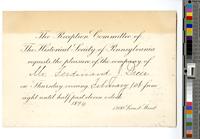 The Reception Committee of
The Historical Society of Pennsylvania
requests the pleasure of the company of
Mr. Ferdinand J. Dreer
on Thursday evening February 10th from
eight until half past eleven o'clock
1300 Locust Street